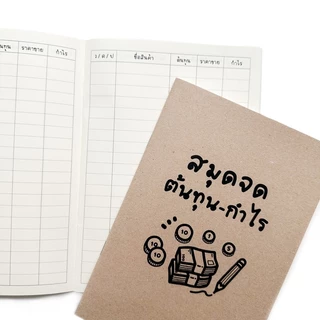 ต้นทุน ราคาขาย กำไร
ว / ด / ป ชื่อสินค้า ต้นทุน ราคาขาย กำไร
สมุดจด
ต้นทุน-กำไร
10 1 5
10 10